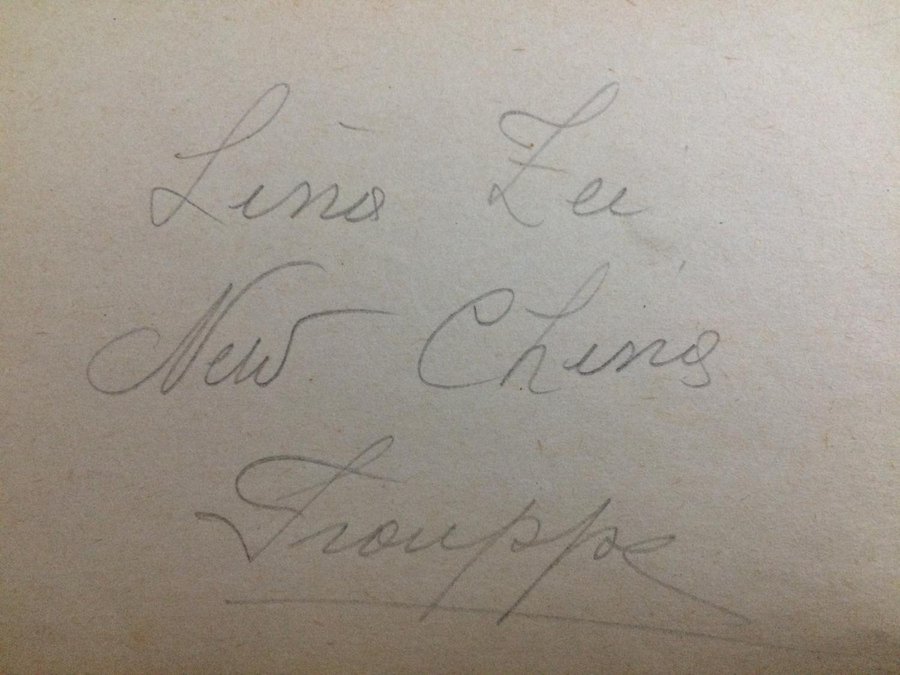 Lina Zei
New China
Trouppe